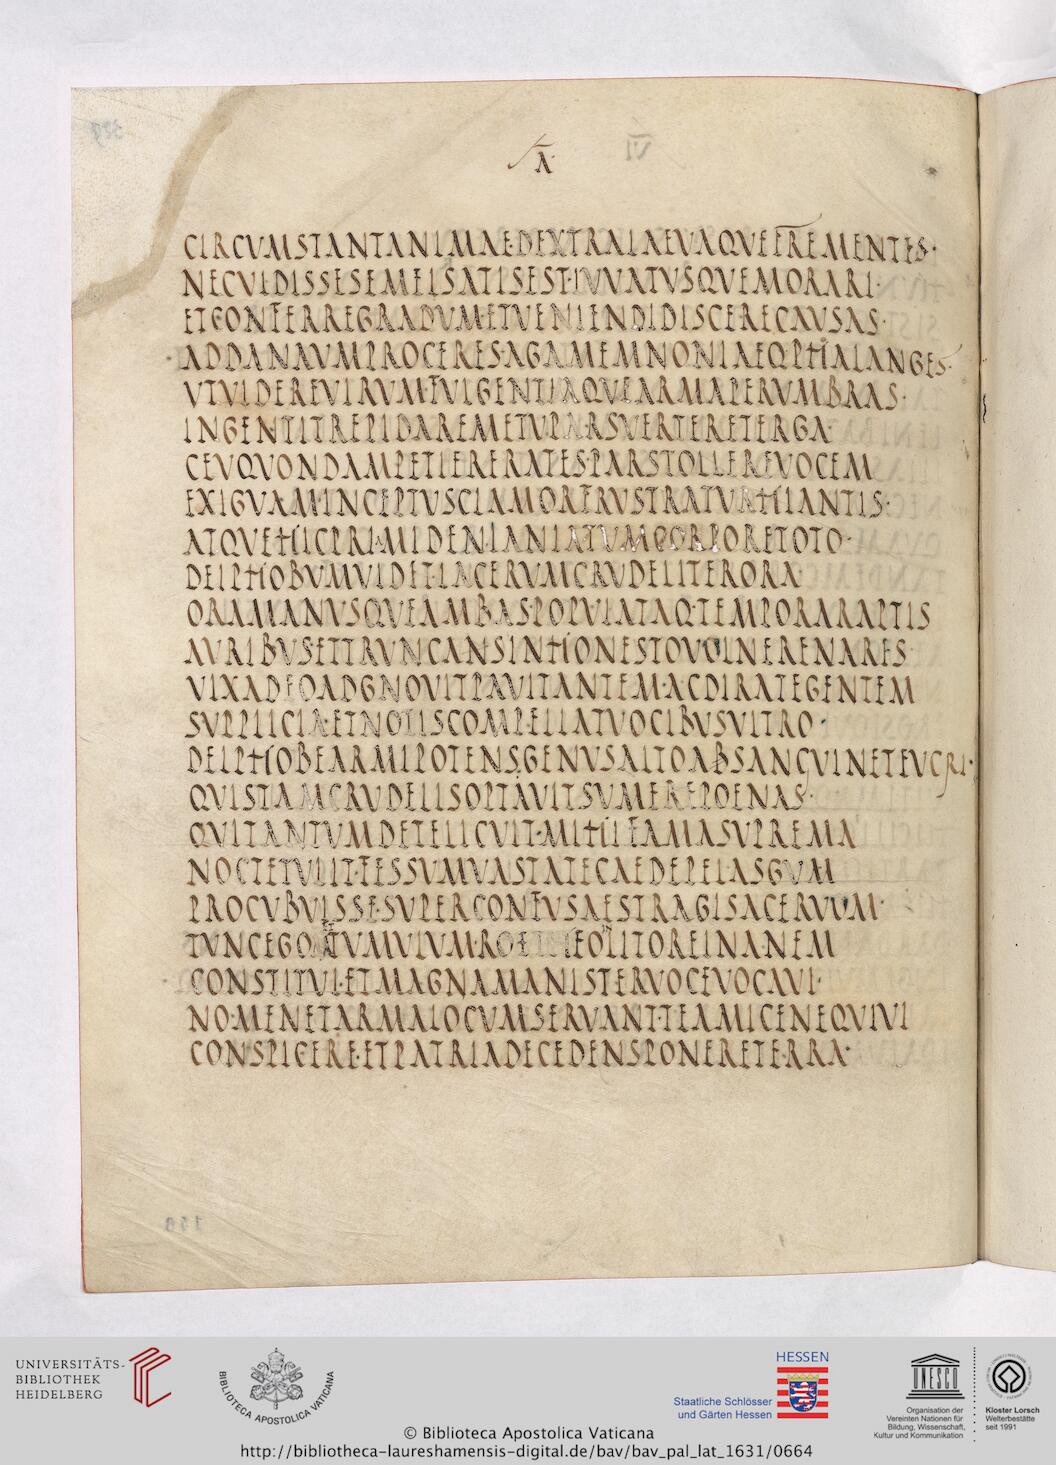 A·
CIRCVMSTANTANIMAE·DEXTRALAEVAQVEFREMENTES·
NECVIDISSESEMELSATISEST·IVVATVSQVEMORARI·
ETCONFERREGRADVM·ETVENIENDIDISCERECAVSAS·
ADDANAVMPROCERES·AGAMEMNONIAEQ·PHALANGES·
VTVIDEREVIRVM·FVLGENTIAQVEARMAPERVMBRAS·
INGENTITREPIDAREMETVPARSVERTERETERGA·
CEVQVONDAMPETIERERATES·PARSTOLLEREVOCEM
EXIGVAM·INCEPTVSCLAMORFRVSTRATVRHIANTIS·
ATQVEHICPRIAMIDEN·LANIATVMCORPORETOTO·
DEIPHOBVMVIDET·LACERVMCRVDELITERORA
ORAMANVSQVEAMBAS·POPVLATAQ·TEMPORARAPTIS
AVRIBVS·ETTRVNCANSINHONESTOVOLNERENARES
VIXADEOADGNOVITPAVITANTEM·ACDIRATEGENTEM
SVPPLICIA·ETNOTISCOMPELLATVOCIBVSVLTRO·
DEIPHOBEARMIPOTENS·GENVSALTOABSANGVINETEVCRI·
QVISTAMCRVDELISOPTAVITSVMEREPOENAS·
QVITANTVMDETELICVIT·MIHIFAMASVPREMA
NOCTETVLIT·FESSVMVASTATECAEDEPELASGVM
PROCVBVISSE·SVPERCONFVSAESTRAGISACERVVM·
TVNCEGO
CONSTITVI·ETMAGNAMANISTERVOCEVOCAVI·
NOMENETARMALOCVMSERVANT·TEAMICENEQVIVI
CONSPICERE·ETPATRIADECEDENSPONERETERRA·
UNIVERSITÄTS-
BIBLIOTHEK
HEIDELBERG
BIBLIOTECA APOSTOLICA VATICANA
HESSEN
Staatliche Schlösser
und Gärten Hessen
UNESCO
Organisation der
Vereinten Nationen für
Bildung, Wissenschaft,
Kultur und Kommunikation
Kloster Lorsch
Welterbestätte
seit 1991
© Biblioteca Apostolica Vaticana
http://bibliotheca-laureshamensis-digital.de/bav/bav_pal_lat_1631/0664